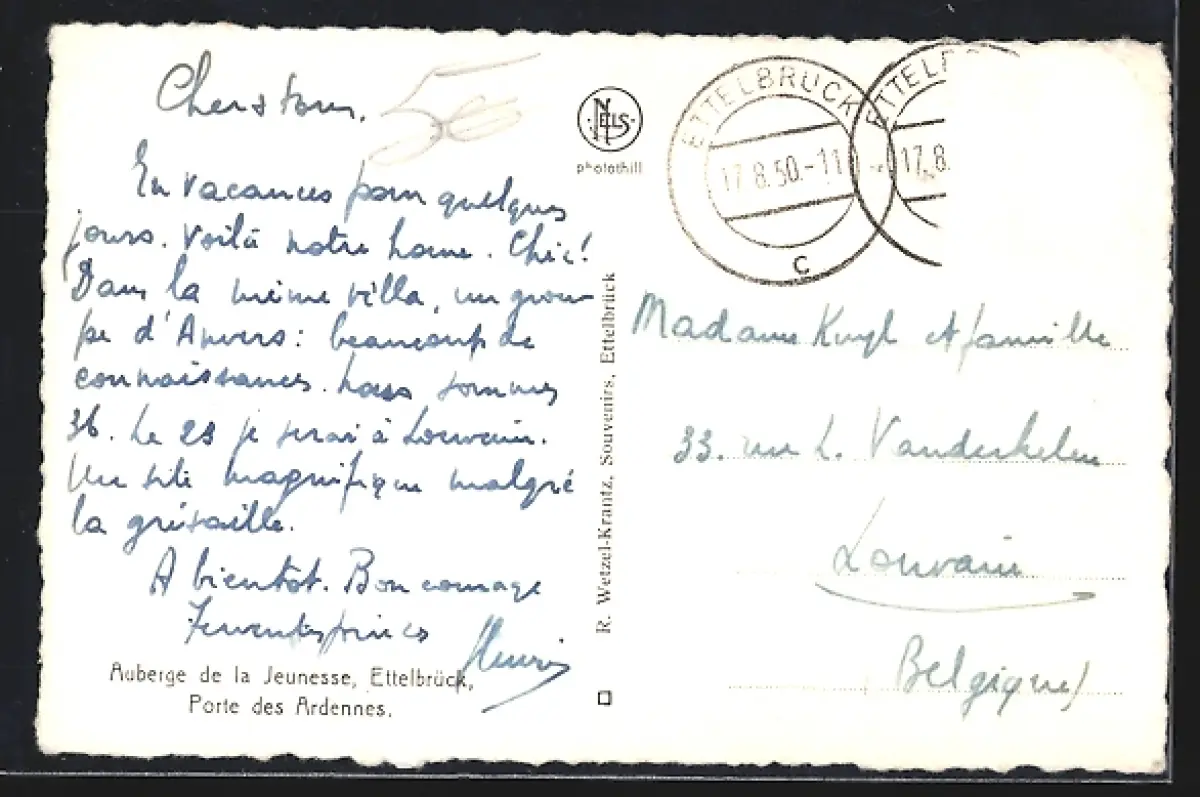 Chers tous,
En vacances pour quelques
jours. Voilà notre home. Chic!
Dans la même villa, un grou-
pe d'Anvers: beaucoup de
connaissances. Nous sommes
36. Le 23 je serai à Louvain.
Un site magnifique malgré
la grisaille.
A bientôt. Bon courage
Ferventes prières
Henri
Auberge de la Jeunesse, Ettelbrück,
Porte des Ardennes.
NELS
photothill
R. Wetzel-Krantz, Souvenirs, Ettelbrück
ETTELBRUCK
17.8.50.-11
C
ETTELB
17.8.
Madame Kuyl et famille
33. rue L. Vanderkelen
Louvain
Belgique